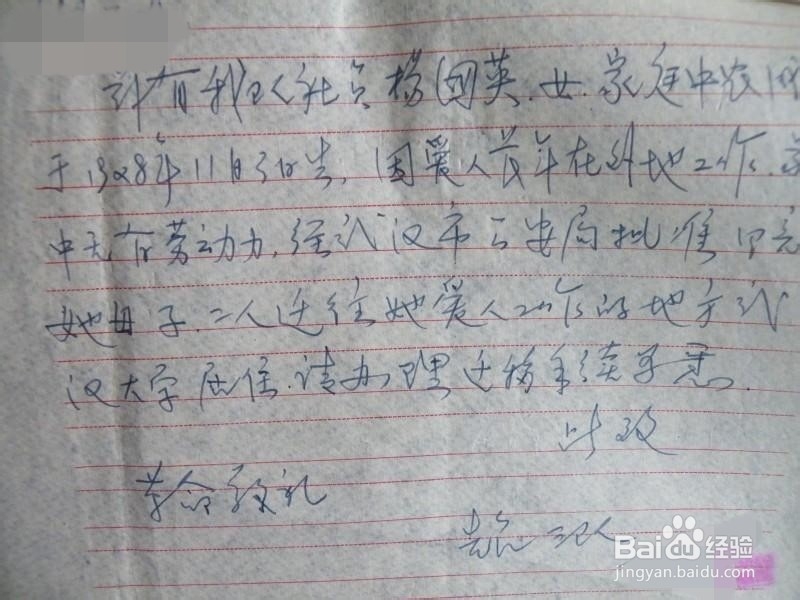 兹有我队社员杨国英.女.家庭中农
于1928年11月30日生,因爱人常年在外地工作.家
中无有劳动力.经武汉市公安局批准
她母子.二人迁往她爱人工作的地方武
汉大学居住.请办理迁移手续
此致
革命敬礼
Baidu经验
jingyan.baidu.com